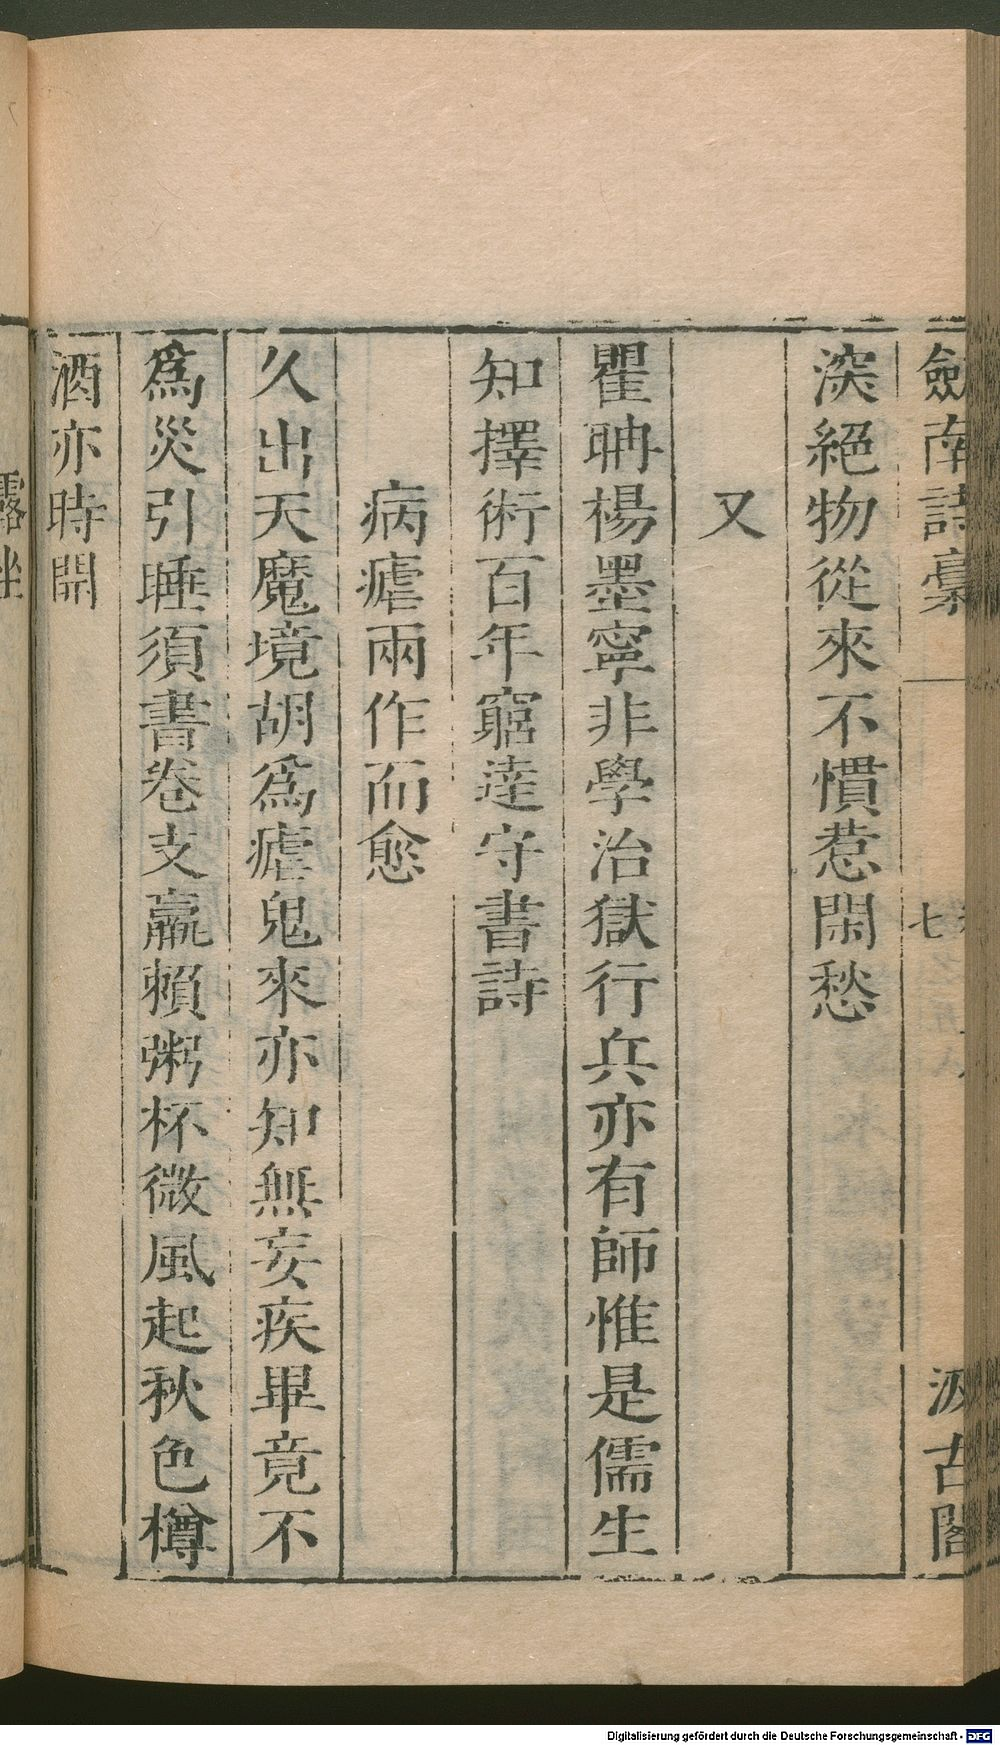 劍南詩稾
七
汲古閣
深絕物從來不慣惹閑愁
又
瞿聃楊墨寧非學治獄行兵亦有師惟是儒生
知擇術百年窮達守書詩
病瘧兩作而愈
久出天魔境胡爲瘧鬼來亦知無妄疾畢竟不
爲災引睡須書卷支羸賴粥杯微風起秋色樽
酒亦時開
露坐
Digitalisierung gefördert durch die Deutsche Forschungsgemeinschaft - DFG